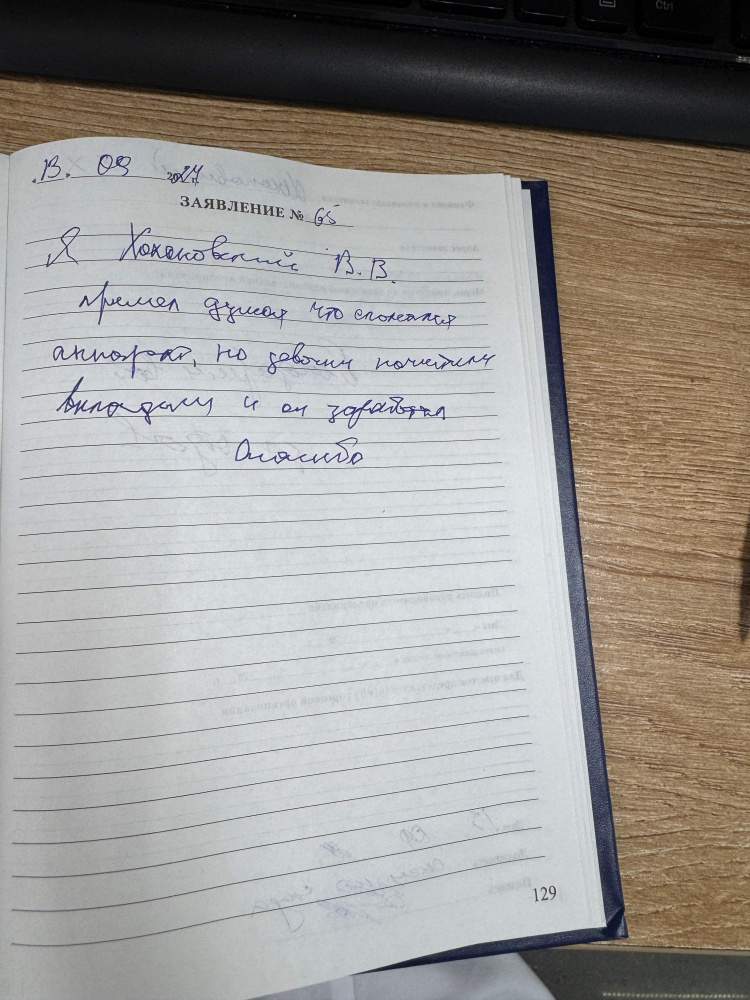 13. 09 2024
ЗАЯВЛЕНИЕ № 65
Я Хохановский В.В.
пришел думал что сломался
аппарат, но девочки почистили
вкладыш и он заработал
Спасибо
129
Ctrl